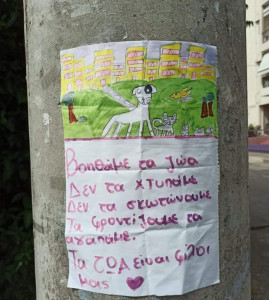 Βοηθάμε τα ζώα
Δεν τα χτυπάμε
Δεν τα σκοτώνουμε
Τα φροντίζουμε τα
αγαπάμε.
Τα ΖΩΑ είναι φίλοι
μας